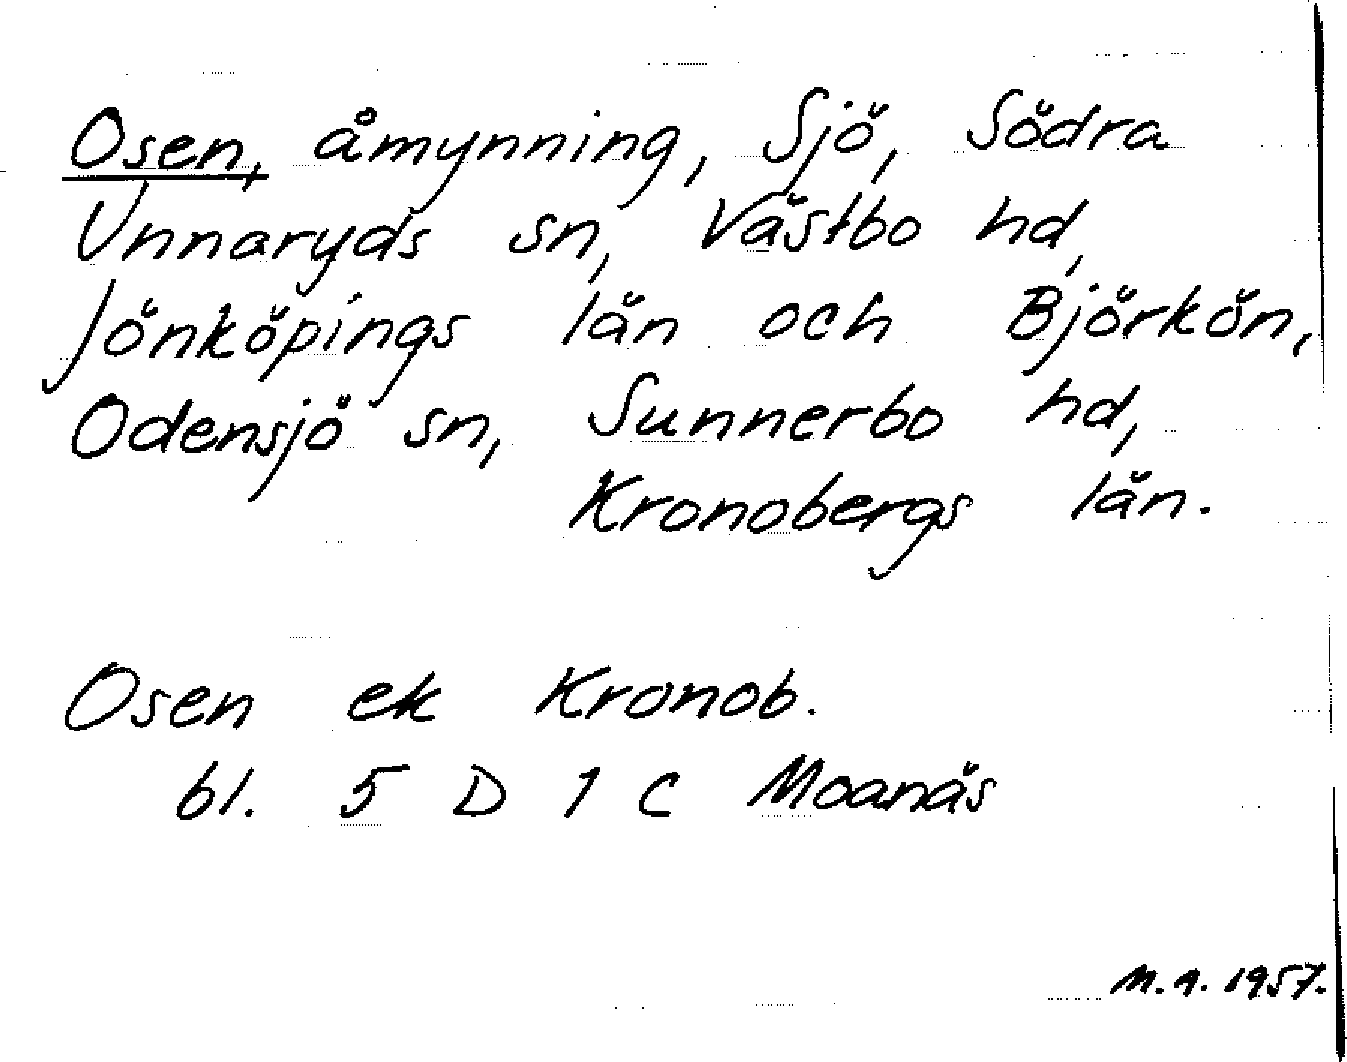 Osen, åmynning, Sjö, Södra
Unnaryds sn, Västbo hd,
Jönköpings län och Björkön,
Odensjö sn, Sunnerbo hd,
Kronobergs län.
Osen ek Kronob.
bl. 5 D 1 c Moanäs
1957.